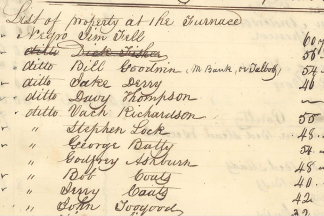 List of property at the Furnace
Negro Jim Fell 60
ditto Dick Fisher 50
ditto Bill Goodwin (M Bank, or Talbot) 54
ditto Jake Derry 40
ditto Davy Thompson —
ditto Vach Richardson 55
" Stephen Lock 48
" George Batty 54
" Godfrey Ashburn 48
" Bob Coats 40
" Jerry Coats 42
" John Toogood 32